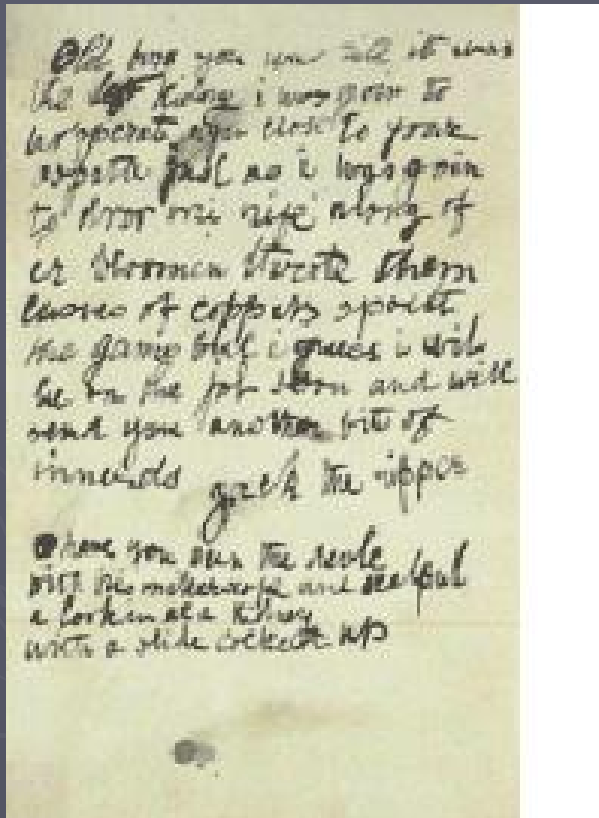 Old boss you was rite it was
the left kidny i was goin to
hopperate agin close to your
ospitle just as i was goin
to dror mi nife along of
er bloomin throte them
cusses of coppers spoilt
the game but i guess i wil
be on the job soon and will
send you another bit of
innerds Jack the ripper
O have you seen the devle
with his mikerscope and scalpul
a lookin at a kidney
with a slide cocked up